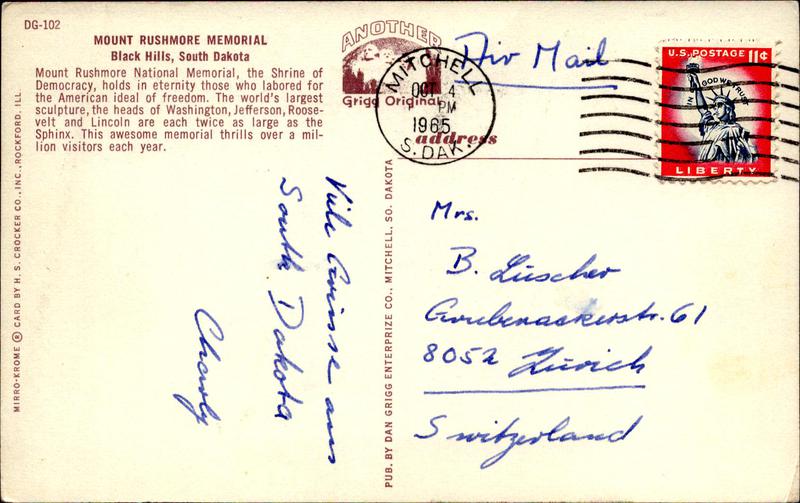 DG-102
MOUNT RUSHMORE MEMORIAL
Black Hills, South Dakota
Mount Rushmore National Memorial, the Shrine of
Democracy, holds in eternity those who labored for
the American ideal of freedom. The world's largest
sculpture, the heads of Washington, Jefferson, Roose-
velt and Lincoln are each twice as large as the
Sphinx. This awesome memorial thrills over a mil-
lion visitors each year.
MIRRO-KROME ® CARD BY H. S. CROCKER CO., INC., ROCKFORD, ILL.
Viele Grüsse aus
South Dakota
Charly
PUB. BY DAN GRIGG ENTERPRIZE CO., MITCHELL, SO. DAKOTA
ANOTHER
Grigg Original
MITCHELL
OCT 4
PM
1965
S. DAK.
Air Mail
address
U.S. POSTAGE 11¢
IN GOD WE TRUST
LIBERTY
Mrs.
B. Lüscher
Grubenackerstr. 61
8052 Zürich
Switzerland